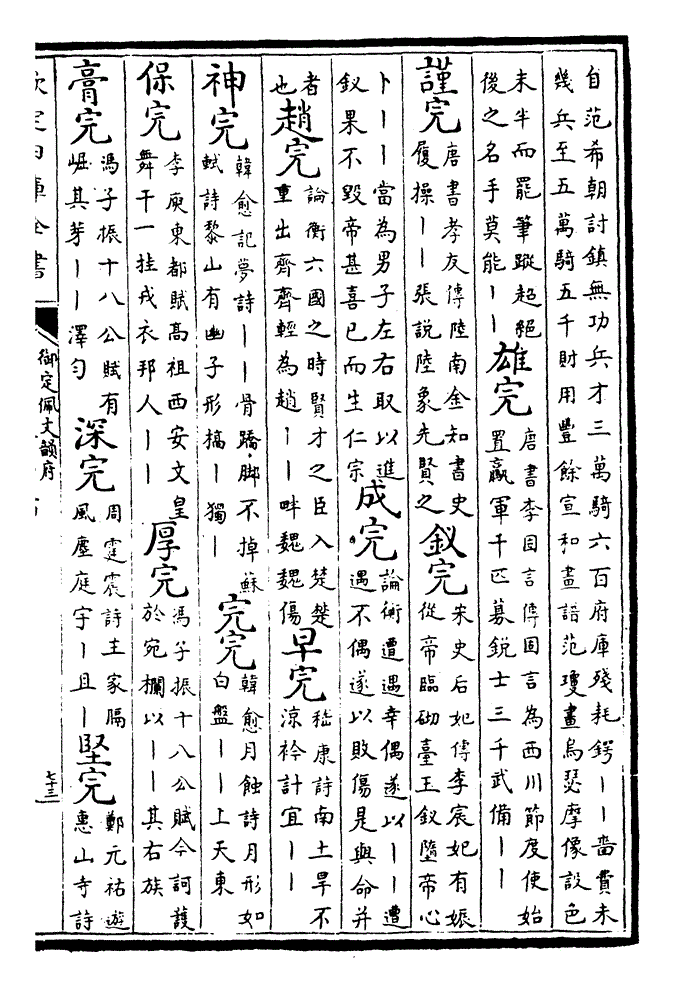 自范希朝討鎮無功兵才三萬騎六百府庫殘耗鍔丨丨嗇費未
幾兵至五萬騎五千財用豐餘宣和畫譜范瓊畫烏瑟摩像設色
未半而罷筆蹤超絕
後之名手莫能丨丨
雄完
唐書李固言傳固言為西川節度使始
置羸軍千匹募銳士三千武備丨丨
謹完
唐書孝友傳陸南金知書史
履操丨丨張說陸象先賢之
釵完
宋史后妃傳李宸妃有娠
從帝臨砌臺玉釵墮帝心
卜丨丨當為男子左右取以進
釵果不毀帝甚喜已而生仁宗
成完
論衡遭遇幸偶遂以丨丨遭
遇不偶遂以敗傷是與命并
者
也
趙完
論衡六國之時賢才之臣入楚楚
重出齊齊輕為趙丨丨畔魏魏傷
早完
嵇康詩南土旱不
涼衿計宜丨丨
神完
韓愈記夢詩丨丨骨蹻脚不掉蘇
軾詩黎山有幽子形槁丨獨丨
完完
韓愈月蝕詩月形如
白盤丨丨上天東
保完
李庾東都賦高祖西安文皇
舞干一挂戎衣邦人丨丨
厚完
馮子振十八公賦今訶護
於宛欄以丨丨其右族
膏完
馮子振十八公賦有
崛其芽丨丨澤勻
深完
周霆震詩主家隔
風塵庭宇丨且丨
堅完
鄭元祐遊
惠山寺詩
欽定四庫全書
御定佩文韻府
七十三